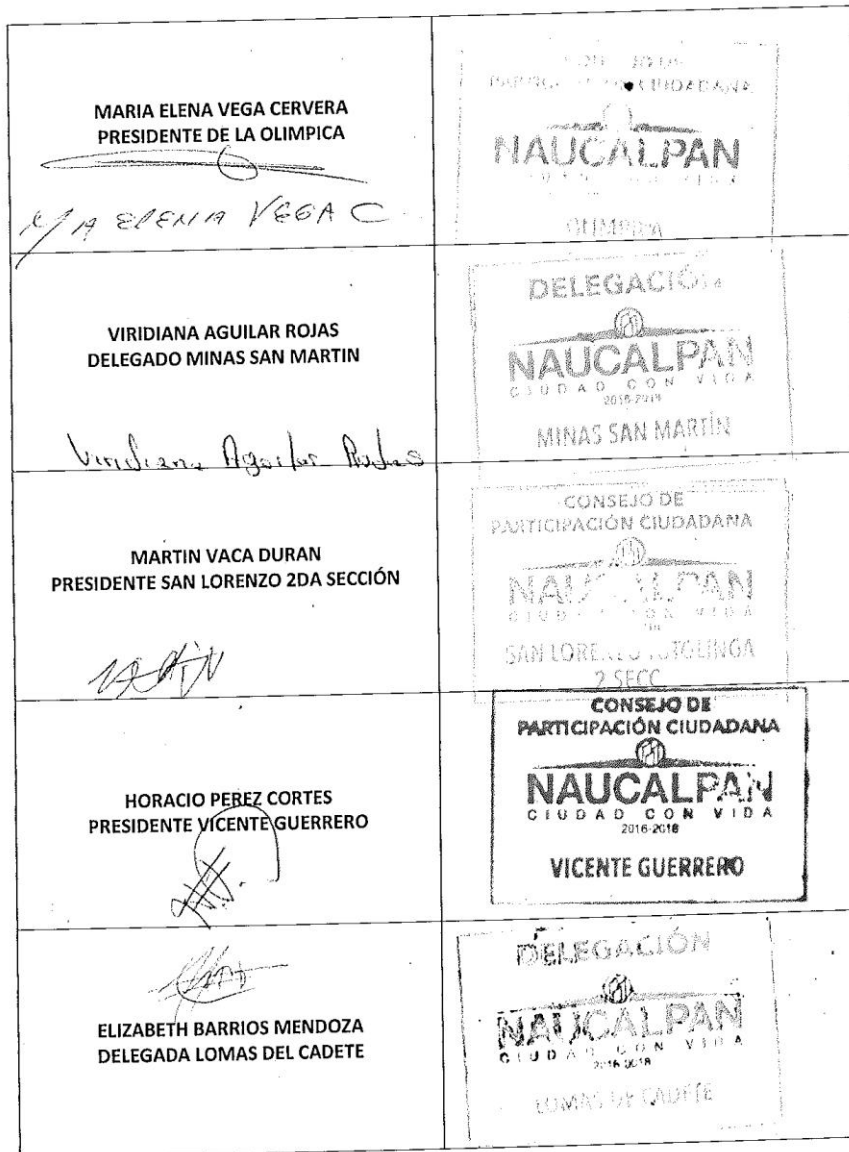 MARIA ELENA VEGA CERVERA
PRESIDENTE DE LA OLIMPICA
Ma ELENA VEGA C
CIUDADANA
NAUCALPAN
OLIMPICA
VIRIDIANA AGUILAR ROJAS
DELEGADO MINAS SAN MARTIN
Viridiana Aguilar Rojas
DELEGACIÓN
NAUCALPAN
CIUDAD CON VIDA
2016-2018
MINAS SAN MARTÍN
MARTIN VACA DURAN
PRESIDENTE SAN LORENZO 2DA SECCIÓN
CONSEJO DE
PARTICIPACIÓN CIUDADANA
NAUCALPAN
CIUDAD CON VIDA
SAN LORENZO TOTOLINGA
2 SECC
HORACIO PEREZ CORTES
PRESIDENTE VICENTE GUERRERO
CONSEJO DE
PARTICIPACIÓN CIUDADANA
NAUCALPAN
CIUDAD CON VIDA
2016-2018
VICENTE GUERRERO
ELIZABETH BARRIOS MENDOZA
DELEGADA LOMAS DEL CADETE
DELEGACIÓN
NAUCALPAN
CIUDAD CON VIDA
2016-2018
LOMAS DE CADETE